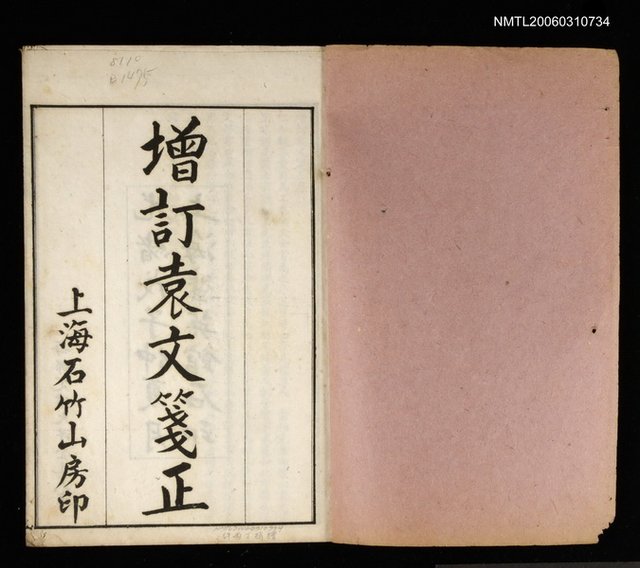 NMTL20060310734
8110
增訂袁文箋正
上海石竹山房印